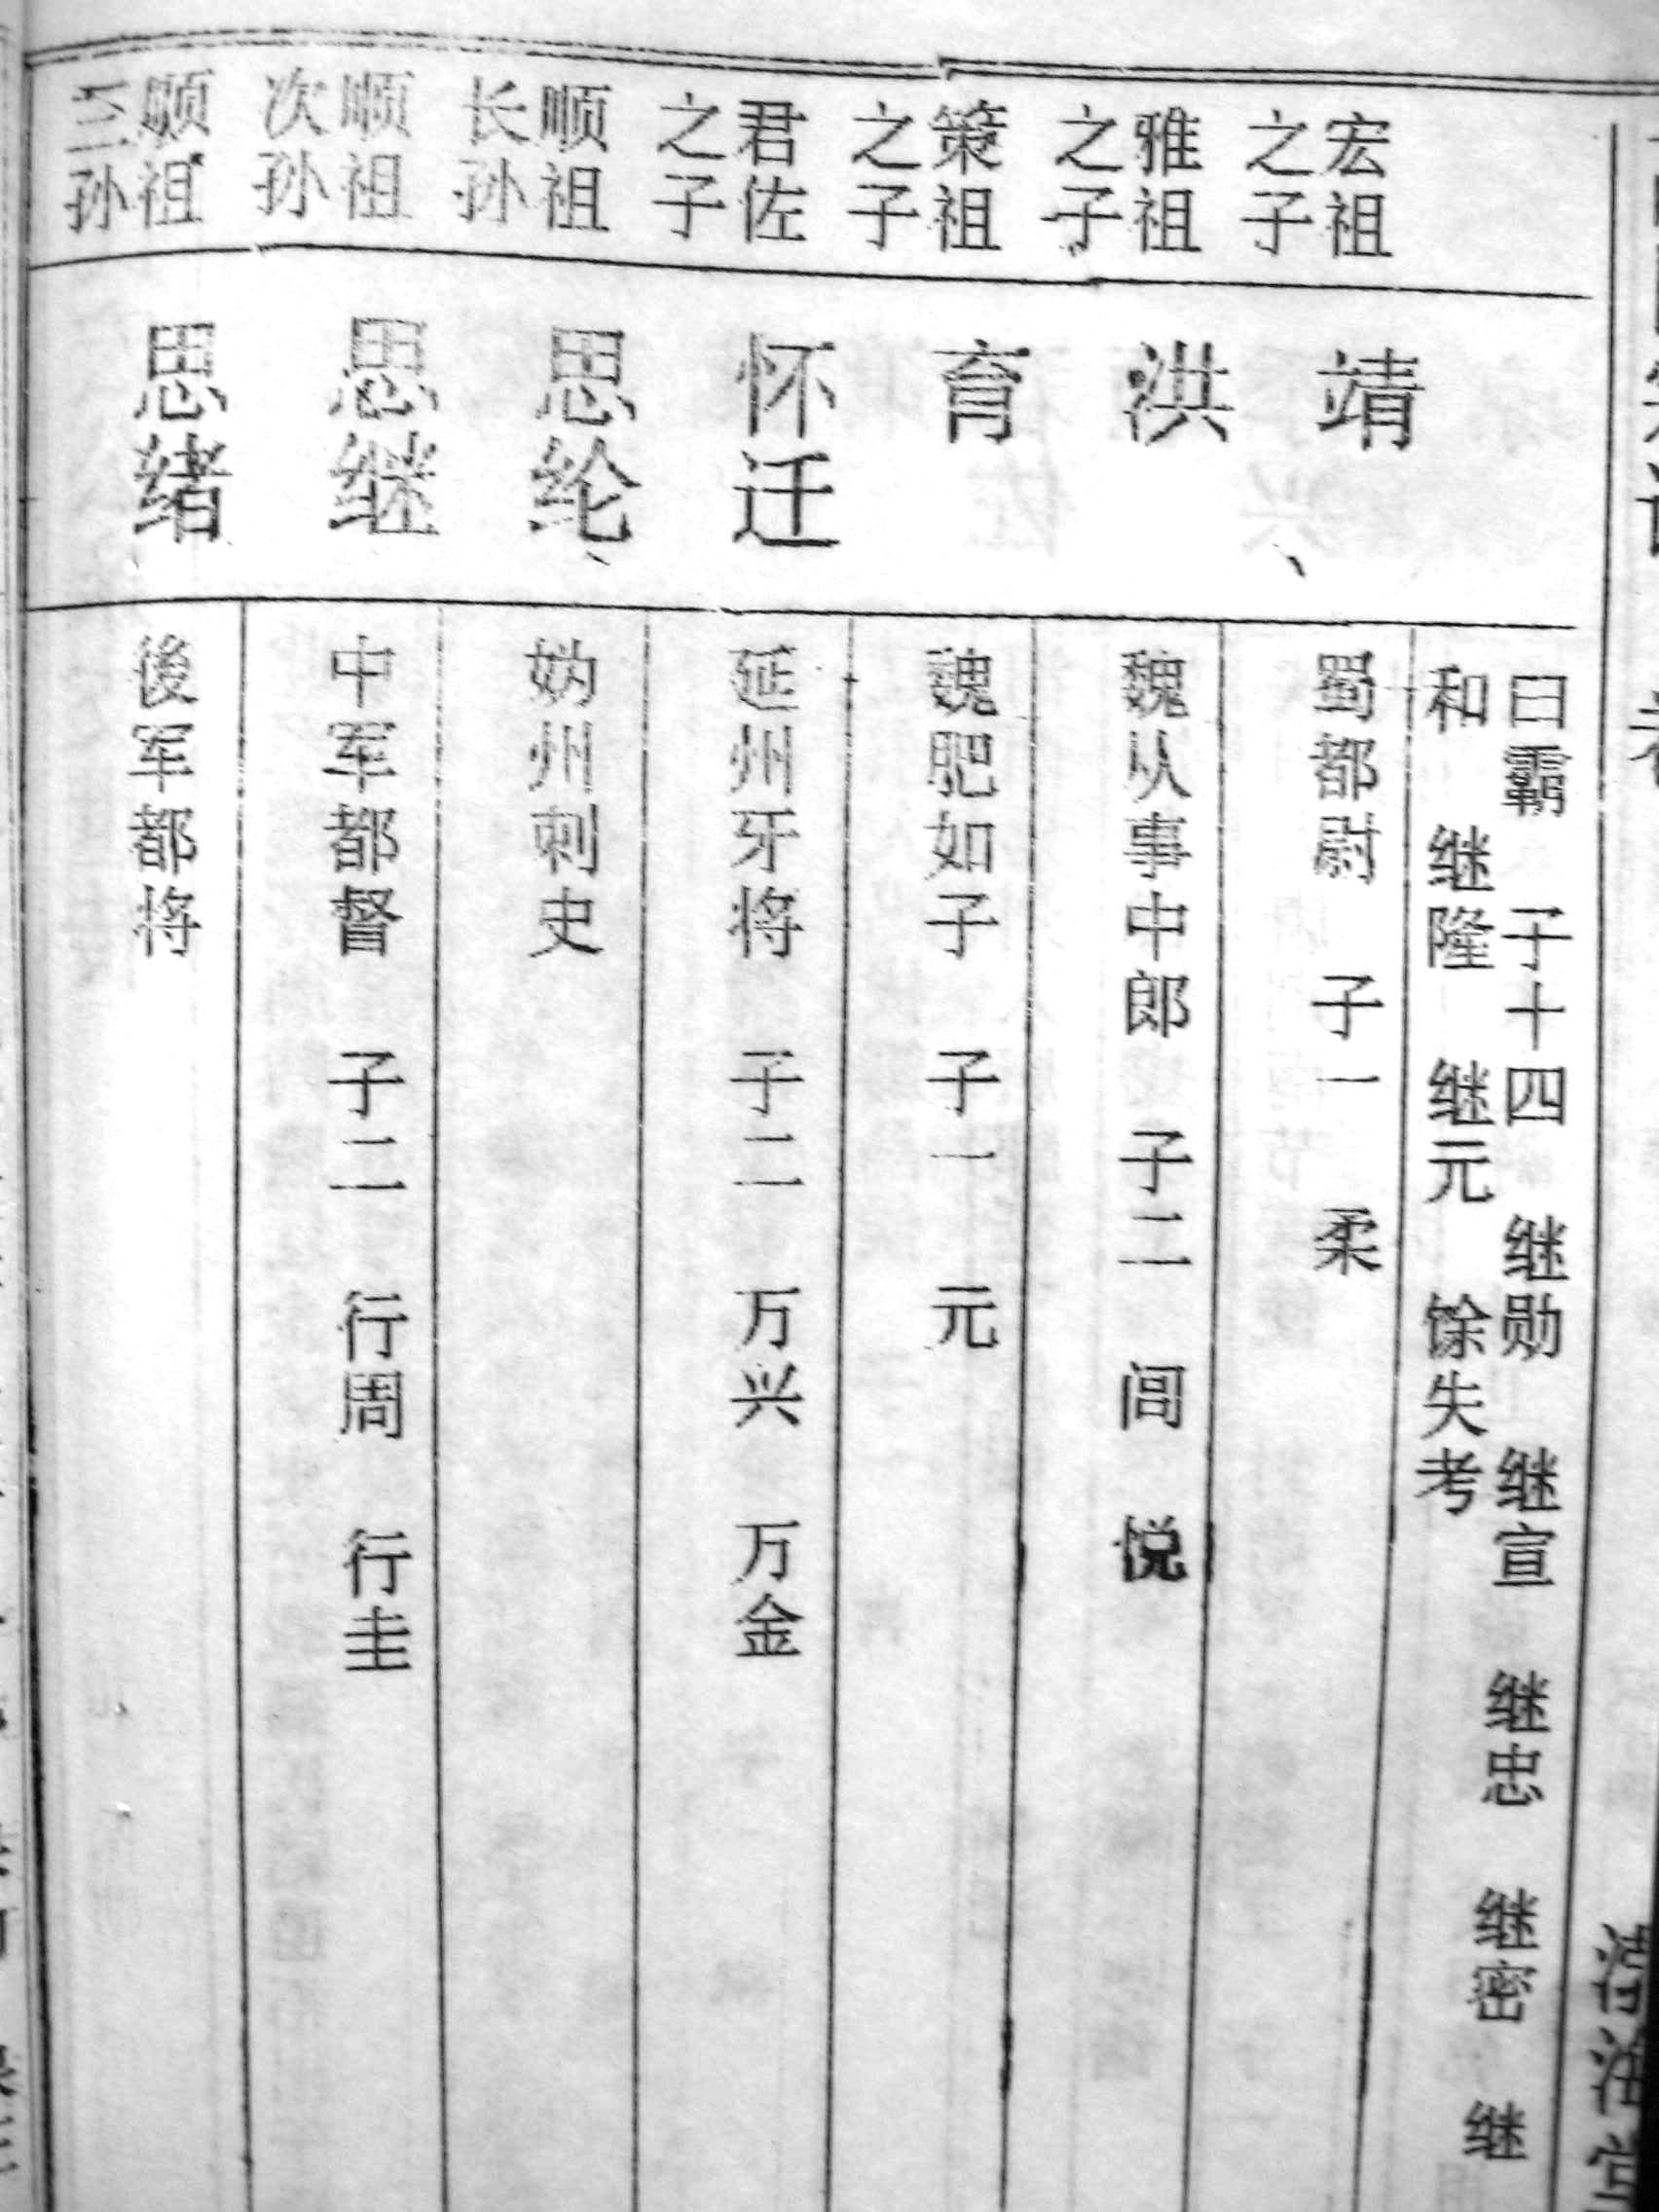 曰霸 子十四 继勋 继宣 继忠 继密 继
和 继隆 继元 馀失考
宏祖
之子
靖
蜀都尉 子一 柔
雅祖
之子
洪
魏从事中郎 子二 闾 悦
策祖
之子
育
魏肥如子 子一 元
君佐
之子
怀迁
延州牙将 子二 万兴 万金
顺祖
长孙
思纶
妫州刺史
顺祖
次孙
思继
中军都督 子二 行周 行圭
顺祖
三孙
思绪
後军都将